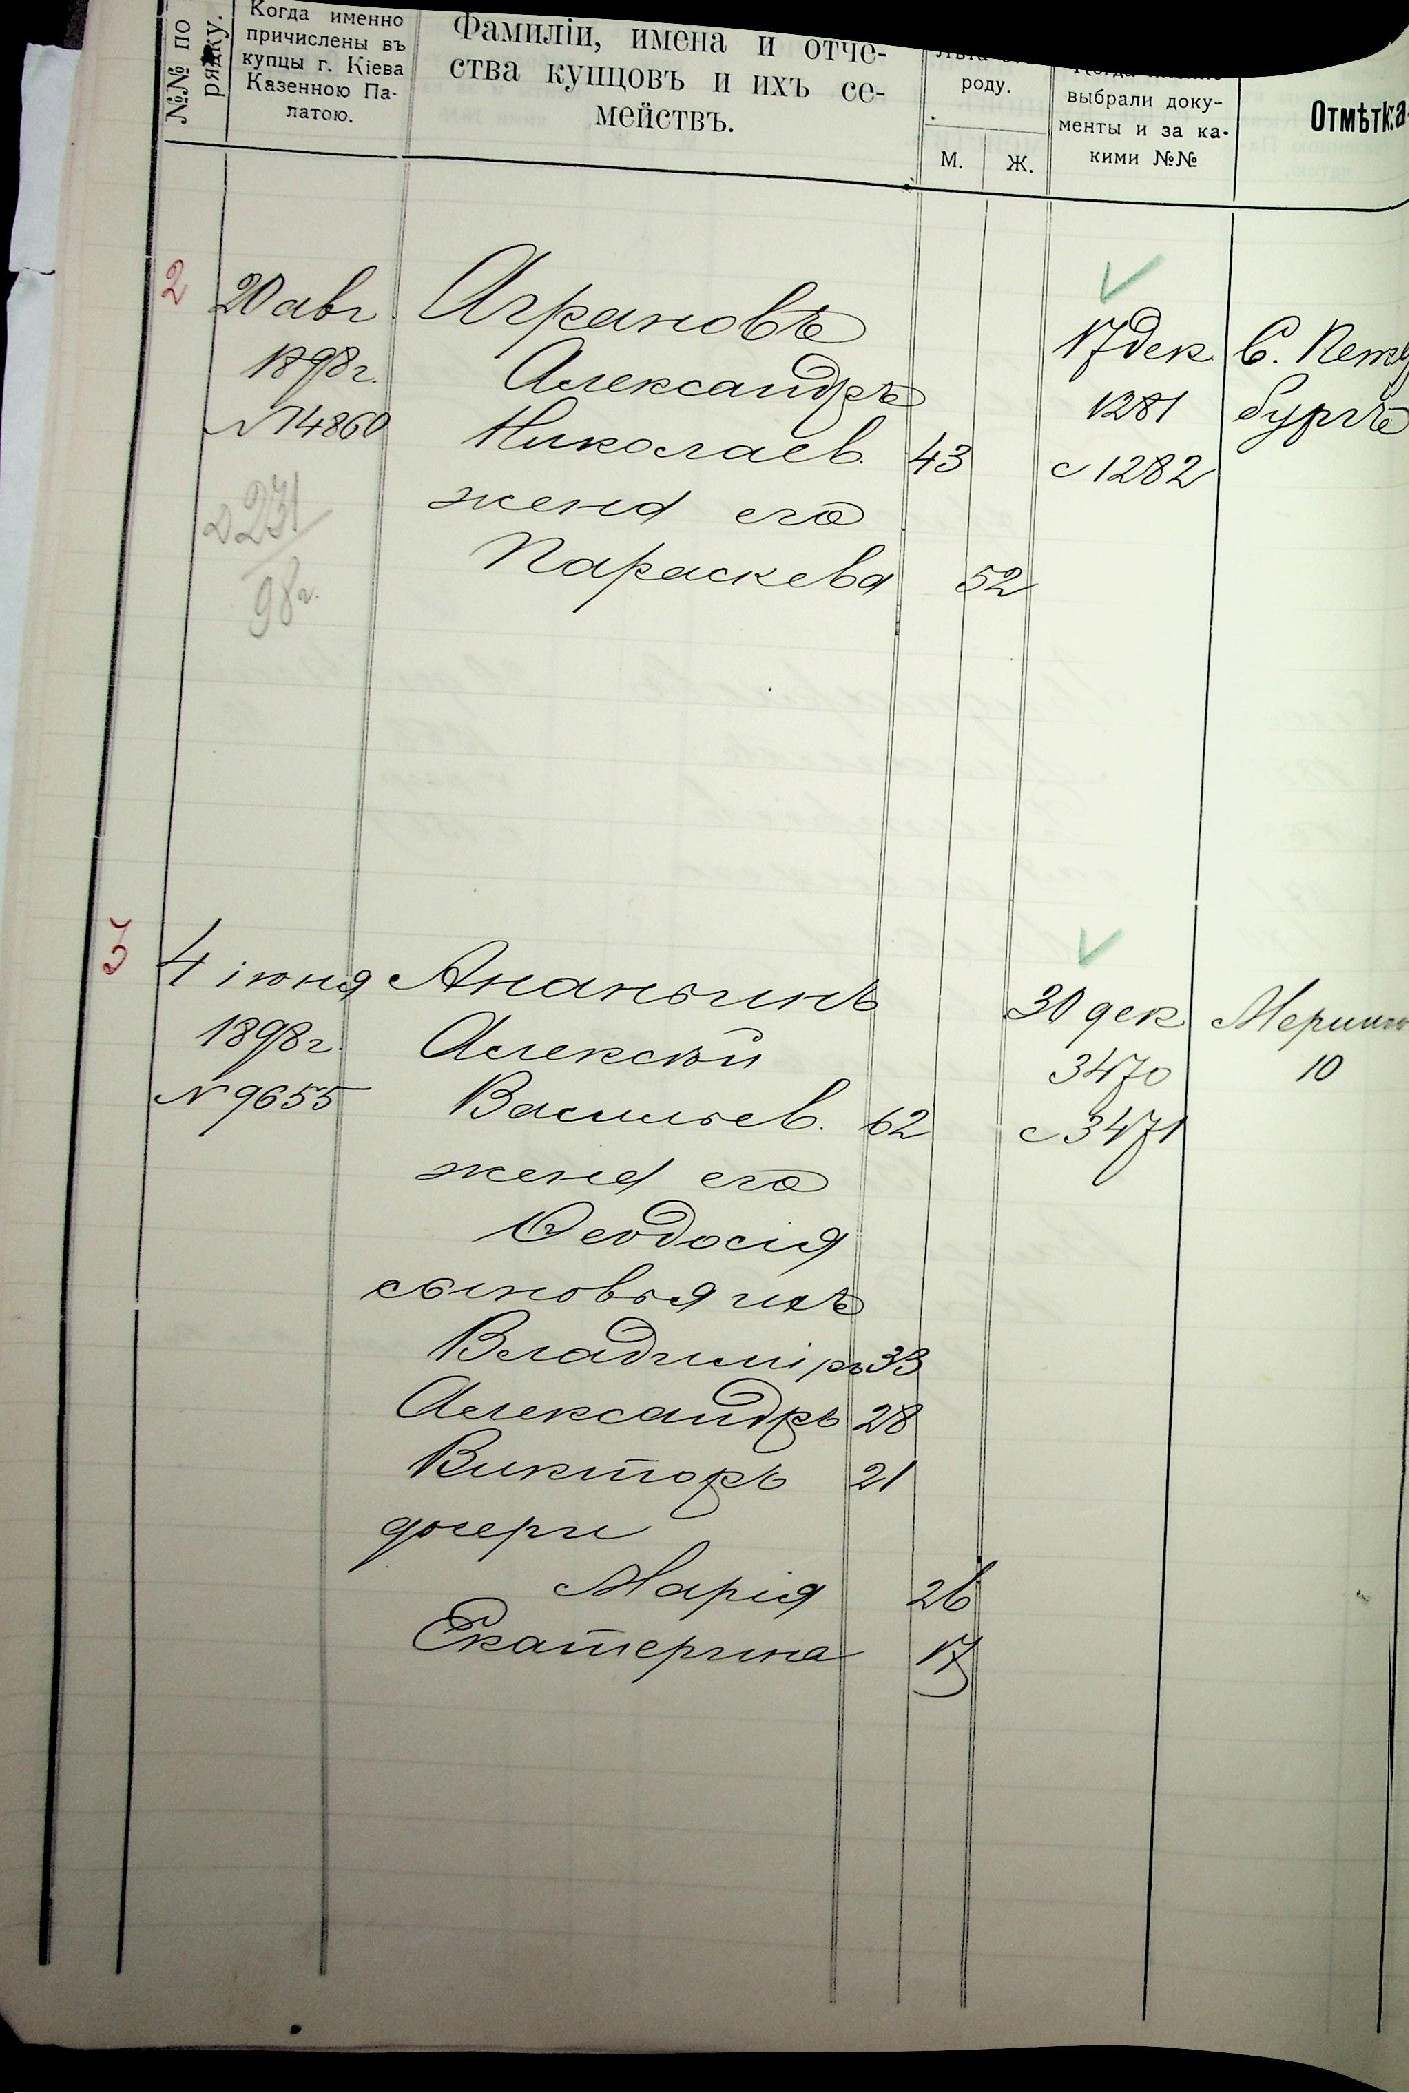 №№ по рядку.
Когда именно
причислены въ
купцы г. Кіева
Казенною Па-
латою.
Фамиліи, имена и отче-
ства купцовъ и ихъ се-
мействъ.
роду.
М. Ж.
выбрали доку-
менты и за ка-
кими №№
Отмѣтка
2
20 авг.
1898 г.
№14860
231
98 г.
Аграновъ
Александръ
Николаев. 43
жена его
Параскева 52
17 дек
1281
с 1282
С. Пет
бургъ
3
4 іюня
1898 г.
№ 9655
Ананьинъ
Алексѣй
Васильев. 62
жена его
Ѳеодосія
сыновья ихъ
Владиміръ 33
Александръ 28
Викторъ 21
дочери
Марія 26
Екатерина 17
30 дек
3470
с 3471
10